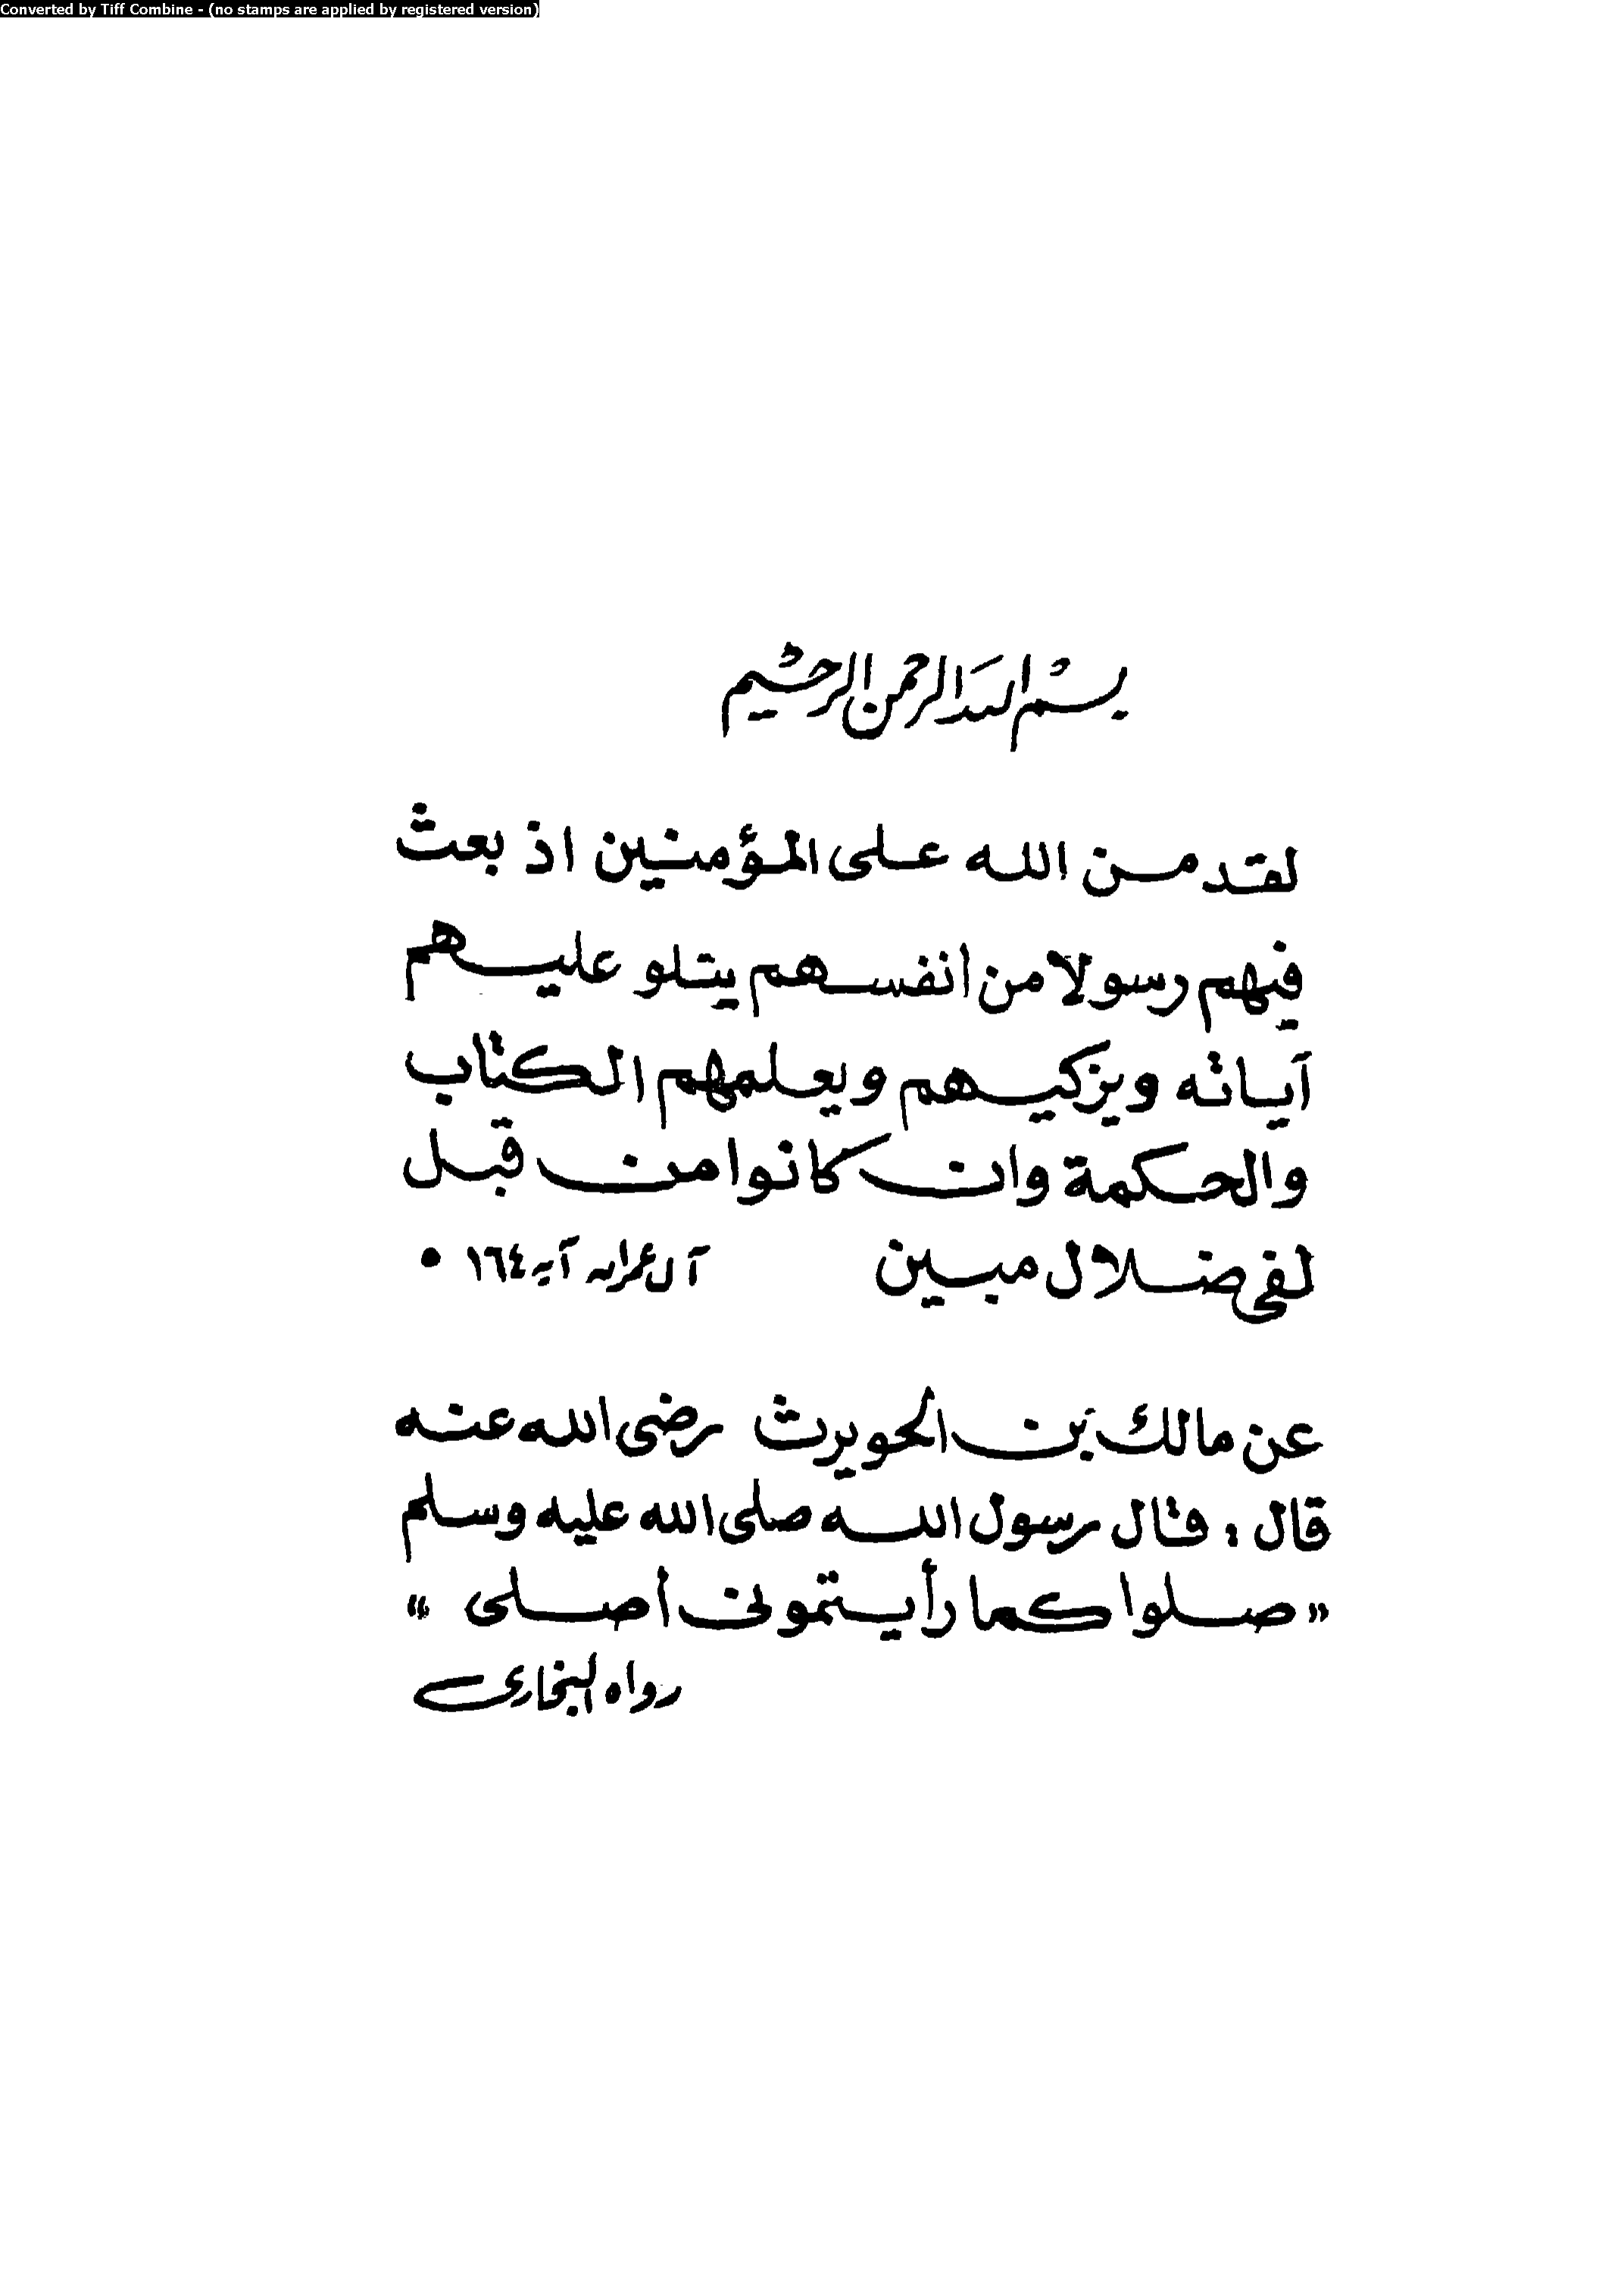 Converted by Tiff Combine - (no stamps are applied by registered version)
بسم الله الرحمن الرحيم
لقد من الله على المؤمنين اذ بعث
فيهم رسولا من انفسهم يتلو عليهم
آياته ويزكيهم ويعلمهم الكتاب
والحكمة وان كانوا من قبل
لفى ضلال مبين آل عمران آية ١٦٤ •
عن مالك بن الحويرث رضى الله عنه
قال : قال رسول الله صلى الله عليه وسلم
« صلوا كما رأيتمونى أصلى »
رواه البخارى